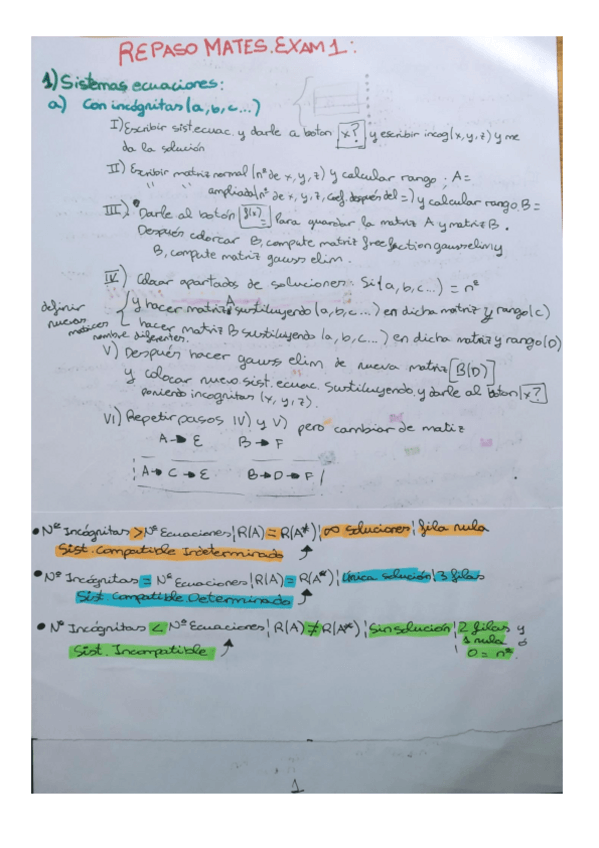 REPASO MATES. EXAM 1:
1) Sistemas ecuaciones:
a) Con incógnitas (a, b, c...)
I) Escribir sist ecuac. y darle a boton x? y escribir incog (x, y, z) y me
da la solución
II) Escribir matriz normal (nº de x, y, z) y calcular rango; A=
" " ampliada (nº de x, y, z, coef. después del =) y calcular rango B=
III) Darle al botón para guardar la matriz A y matriz B.
Después colorcar B, compute matriz free faction gauss elim y
B, compute matriz gauss elim.
IV) Colocar apartados de soluciones: Si (a, b, c...) = nº
y hacer matriz A sustituyendo (a, b, c...) en dicha matriz y rango (C)
hacer matriz B sustituyendo (a, b, c...) en dicha matriz y rango (D)
definir nuevas matrices nombre diferentes.
V) Después hacer gauss elim de nueva matriz [B(D)]
y colocar nuevo sist. ecuac. sustituyendo y darle al boton x?
poniendo incognitas (x, y, z).
VI) Repetir pasos IV) y V) pero cambiar de matiz
A → E B → F
A → C → E B → D → F
• Nº Incógnitas > Nº Ecuaciones | R(A) = R(A*) | ∞ soluciones | fila nula
Sist. Compatible Indeterminado
• Nº Incógnitas = Nº Ecuaciones | R(A) = R(A*) | única solución | 3 filas
Sist Compatible Determinado
• Nº Incógnitas < Nº Ecuaciones | R(A) ≠ R(A*) | sin solución | 2 filas y
1 nula ó
Sist. Incompatible
0 = nº.
1